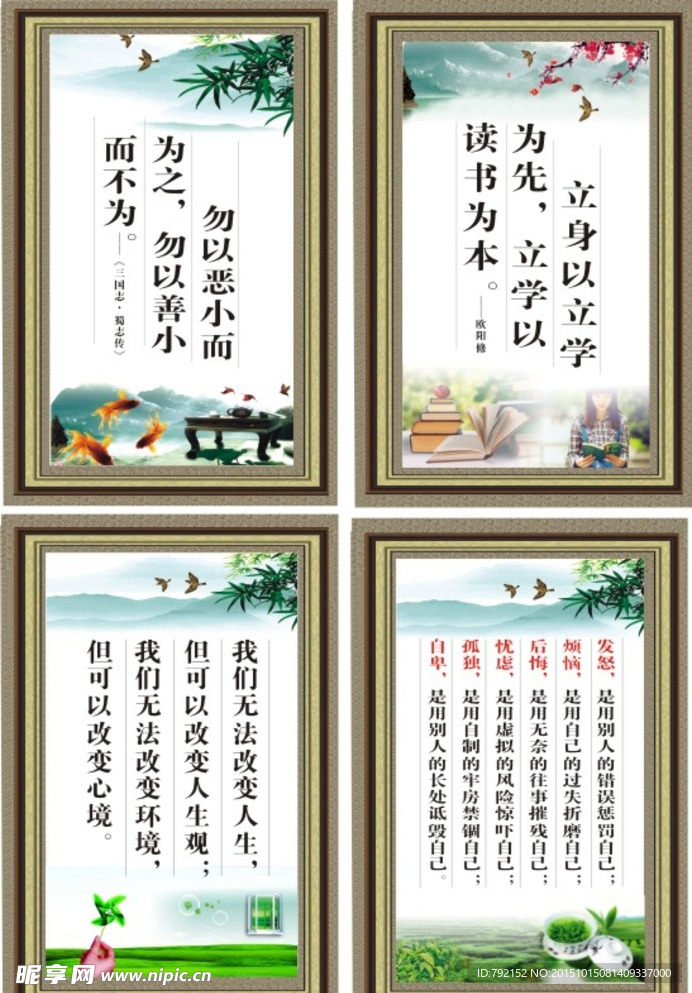 勿以恶小而
为之，勿以善小
而不为。
——《三国志·蜀志传》
立身以立学
为先，立学以
读书为本。
——欧阳修
我们无法改变人生，
但可以改变人生观；
我们无法改变环境，
但可以改变心境。
发怒，是用别人的错误惩罚自己；
烦恼，是用自己的过失折磨自己；
后悔，是用无奈的往事摧残自己；
忧虑，是用虚拟的风险惊吓自己；
孤独，是用自制的牢房禁锢自己；
自卑，是用别人的长处诋毁自己。
昵享网 www.nipic.cn
ID:792152 NO:20151015081409337000